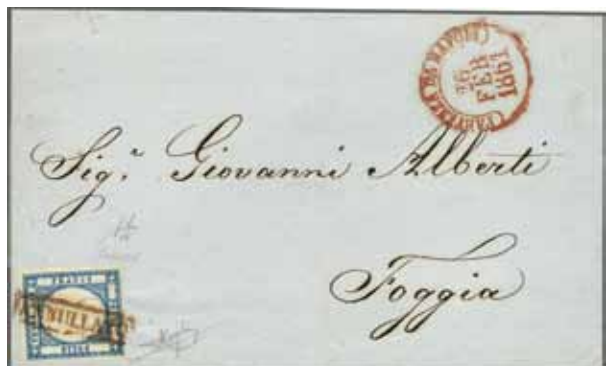 (PARTENZA DA NAPOLI)
26
FEB
1861
Sig.r Giovanni Alberti
Foggia
FRANCO
ANNULLATO
BOLLO